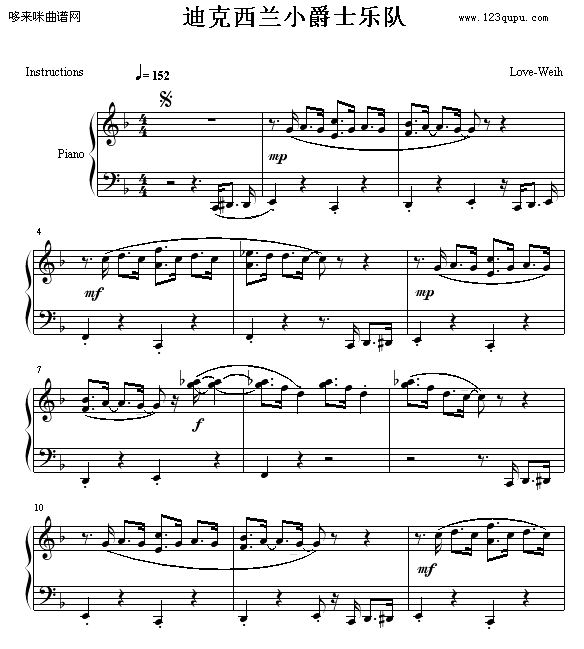 哆来咪曲谱网
迪克西兰小爵士乐队
www.123qupu.com
Instructions
= 152
Love-Weih
Piano
4
4
4
4
mp
4
mf
mp
7
f
10
mf